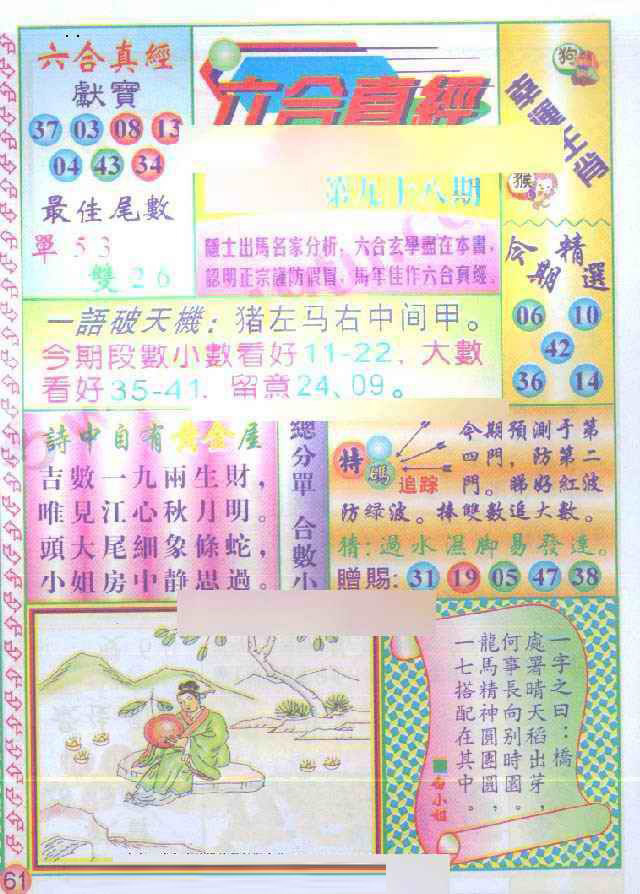 六合真經
獻寶
37 03 08 13
04 43 34
最佳尾數
單 5 3
雙 2 6
六合真經
第九十八期
隱士出馬名家分析，六合玄學盡在本書，
認明正宗謹防假冒，馬年佳作六合真經。
狗
幸運生肖
猴
今期精選
06 10
42
36 14
一語破天機：猪左马右中间甲。
今期段數小數看好11-22，大數
看好35-41，留意24、09。
詩中自有黃金屋
吉數一九兩生財，
唯見江心秋月明。
頭大尾細象條蛇，
小姐房中静思過。
總分單 合數小
特碼
追踪
今期預測于第
四門，防第二
門。睇好紅波
防绿波。捧雙數追大數。
猜：過水濕脚易發達。
贈賜：31 19 05 47 38
一字之曰：橋
處署晴天稻出芽，
何事長向别時圓。
龍馬精神圓團圓，
一七搭配在其中。
白小姐
61